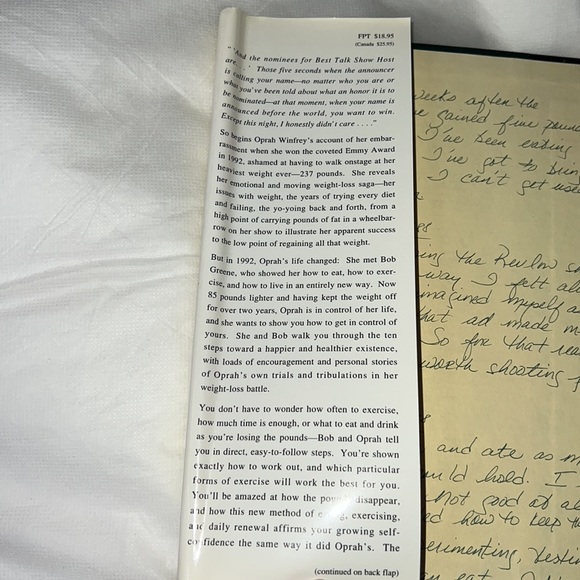 FPT $18.95
(Canada $25.95)
"'And the nominees for Best Talk Show Host
are. . . .' Those five seconds when the announcer
is calling your name—no matter who you are or
what you've been told about what an honor it is to
be nominated—at that moment, when your name is
announced before the world, you want to win.
Except this night, I honestly didn't care . . . ."
So begins Oprah Winfrey's account of her embar-
rassment when she won the coveted Emmy Award
in 1992, ashamed at having to walk onstage at her
heaviest weight ever—237 pounds. She reveals
her emotional and moving weight-loss saga—her
issues with weight, the years of trying every diet
and failing, the yo-yoing back and forth, from a
high point of carrying pounds of fat in a wheelbar-
row on her show to illustrate her apparent success
to the low point of regaining all that weight.
But in 1992, Oprah's life changed: She met Bob
Greene, who showed her how to eat, how to exer-
cise, and how to live in an entirely new way. Now
85 pounds lighter and having kept the weight off
for over two years, Oprah is in control of her life,
and she wants to show you how to get in control of
yours. She and Bob walk you through the ten
steps toward a happier and healthier existence,
with loads of encouragement and personal stories
of Oprah's own trials and tribulations in her
weight-loss battle.
You don't have to wonder how often to exercise,
how much time is enough, or what to eat and drink
as you're losing the pounds—Bob and Oprah tell
you in direct, easy-to-follow steps. You're shown
exactly how to work out, and which particular
forms of exercise will work the best for you.
You'll be amazed at how the pounds disappear,
and how this new method of eating, exercising,
and daily renewal affirms your growing self-
confidence the same way it did Oprah's. The
(continued on back flap)
weeks after the
gained five pounds
I've been eating
I've got to
I can't get
ing the Revlon
way I felt
imagined myself
that ad made
So fine that
worth shooting
and ate as
hold. I
Not good at
how to keep